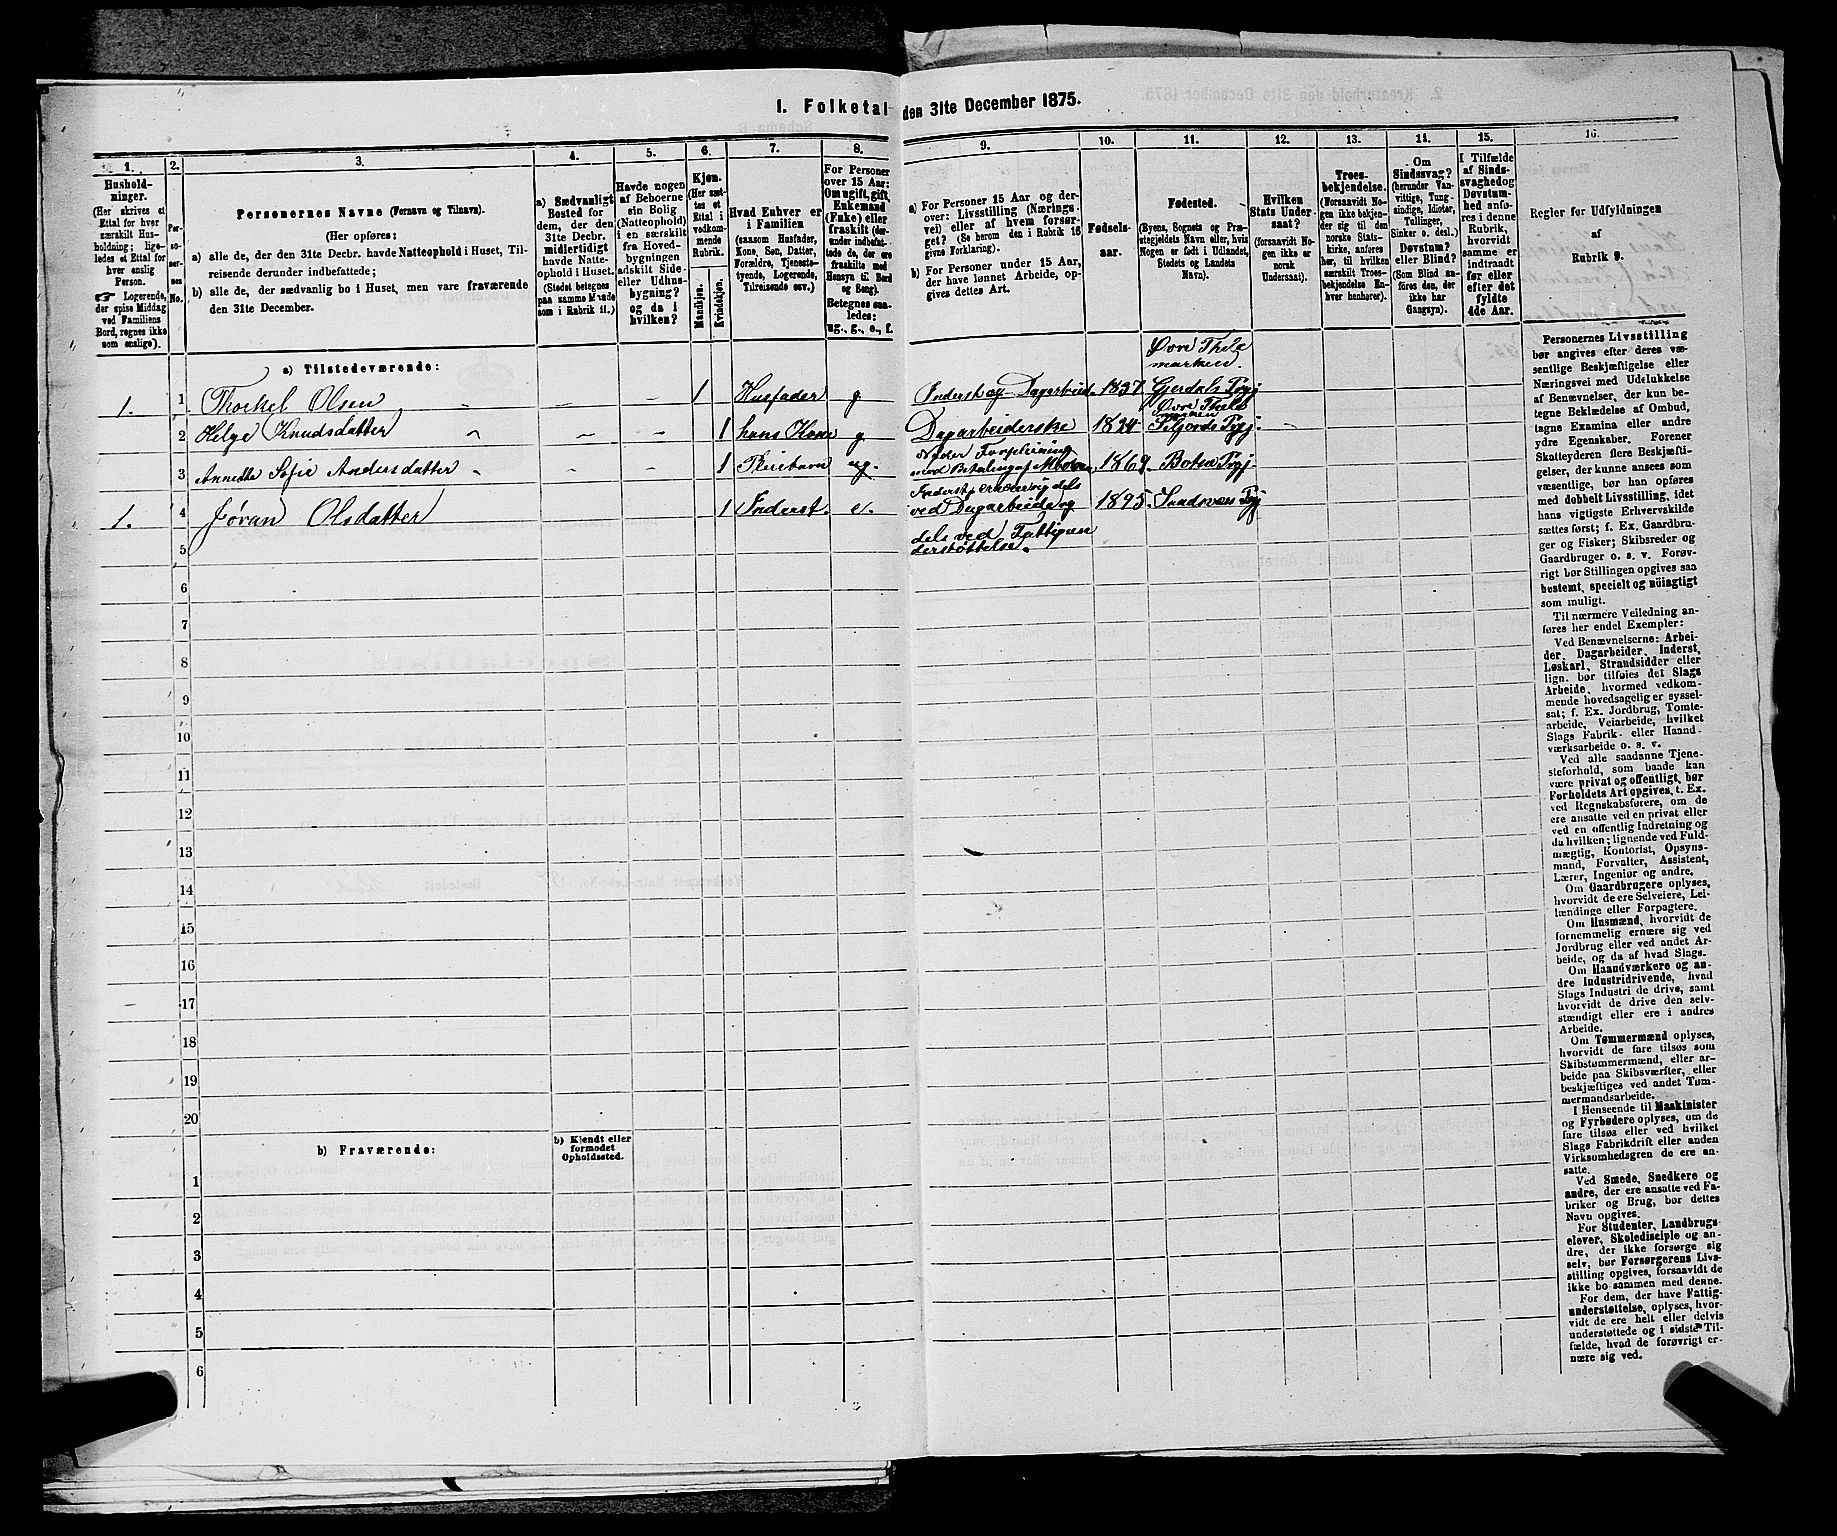 I. Folketal den 31te December 1875.
1. 2. 3. 4. 5. 6. 7. 8. 9. 10. 11. 12. 13. 14. 15. 16.
Hushold-
ninger.
(Her skrives et
Ettal for hver
særskilt Hus-
holdning; lige-
ledes et Ettal for
hver enslig
Person.
☞ Logerende,
der spise Middag
ved Familiens
Bord, regnes ikke
som enslige).
Per-
so-
ner-
nes
No.
Personernes Navne (Fornavn og Tilnavn).
(Her opføres:
a) alle de, der den 31te Decbr. havde Natteophold i Huset, Til-
reisende derunder indbefattede;
b) alle de, der sædvanlig bo i Huset, men vare fraværende
den 31te December.
a) Sædvanligt
Bosted for
dem, der den
31te Decbr.
midlertidigt
havde Natte-
ophold i Huset.
(Stedet betegnes
paa samme Maade
som i Rubrik 11.)
Havde nogen
af Beboerne
sin Bolig
(Natteophold)
i en særskilt
fra Hoved-
bygningen
adskilt Side-
eller Udhus-
bygning?
og da i
hvilken?
Kjøn.
(Her sæt-
tes et
Ettal i
vedkom-
mende
Rubrik.
Mandkjøn.
Kvindekjøn.
Hvad Enhver er
i Familien
(saasom Husfader,
Kone, Søn, Datter,
Forældre, Tjeneste-
tyende, Logerende,
Tilreisende osv.)
For Personer
over 15 Aar:
Om ugift, gift,
Enkemand
(Enke) eller
fraskilt (der-
under indbefat-
tede de, der
ere fraskilte med
Hensyn til Bord
og Seng).
Betegnes saa-
ledes:
ug., g., e., f.
a) For Personer 15 Aar og der-
over: Livsstilling (Nærings-
vei) eller af hvem forsør-
get? (Se herom den i Rubrik 16
givne Forklaring).
b) For Personer under 15 Aar,
der have lønnet Arbeide, op-
gives dettes Art.
Fødsels-
aar.
Fødested.
(Byens, Sognets og Præ-
stegjeldets Navn eller, hvis
Nogen er født i Udlandet,
Stedets og Landets
Navn).
Hvilken
Stats Under-
saat?
(forsaavidt No-
gen ikke er
norsk
Undersaat).
Troes-
bekjendelse.
(Forsaavidt No-
gen ikke bekjen-
der sig til den
norske Stats-
kirke, anføres
her, til hvilken
særskilt Troes-
bekjendelse En-
hver henhører).
Om
Sindssvag?
(herunder Van-
vittige, Tung-
sindige, Idioter,
Tullinger,
Sinker o. desl.)
Døvstum?
eller Blind?
(Som Blind an-
føres den, der
ikke har
Gangsyn).
I Tilfælde
af Sinds-
svaghed og
Døvstum-
hed anfø-
res i denne
Rubrik,
hvorvidt
samme er
indtraadt
før eller
efter det
fyldte
4de Aar.
Regler for Udfyldningen
af
Rubrik 9.
a) Tilstedeværende:
Øvre Thele
marken.
1. 1 Thorkel Olsen 1 Husfader g Inderst og Dagarbeid. 1837 Gjerdals Pgj
Øvre Thele
marken
2 Helge Knudsdatter 1 hans Kone g Dagarbeiderske 1824 Siljords Pgj.
Under Forpleining
3 Annette Sofie Andersdatter 1 Pleiebarn ug. mod Betaling af 1869. Botne Pgj
1. 4 Jøran Olsdatter 1 Inderst. e. 1895. Sandsvær Pgj
ved Dagarbeide og
5 dels ved Fattigun
derstøttelse.
6
7
8
9
10
11
12
13
14
15
16
17
18
19
20
b) Fraværende:
b) Kjendt eller
formodet
Opholdssted.
1
2
3
4
5
6
Personernes Livsstilling
bør angives efter deres væ-
sentlige Beskjæftigelse eller
Næringsvei med Udelukkelse
af Benævnelser, der kun be-
tegne Beklædelse af Ombud,
tagne Examina eller andre
ydre Egenskaber. Forener
Skatteyderen flere Beskjæfti-
gelser, der kunne ansees som
væsentlige, bør han opføres
med dobbelt Livsstilling, idet
hans vigtigste Erhvervskilde
sættes først; f. Ex. Gaardbru-
ger og Fisker; Skibsreder og
Gaardbruger o. s. v. Forøv-
rigt bør Stillingen opgives saa
bestemt, specielt og nöiagtigt
som muligt.
Til nærmere Veiledning an-
føres her endel Exempler:
Ved Benævnelserne: Arbei-
der, Dagarbeider, Inderst,
Løskarl, Strandsidder eller
lign. bør tilføies det Slags
Arbeide, hvormed vedkom-
mende hovedsagelig er syssel-
sat; f. Ex. Jordbrug, Tomte-
arbeide, Veiarbeide, hvilket
Slags Fabrik- eller Haand-
værksarbeide o. s. v.
Ved alle saadanne Tjene-
steforhold, som baade kan
være privat og offentligt, bør
Forholdets Art opgives, t. Ex.
ved Regnskabsførere, om de
ere ansatte ved en privat eller
ved en offentlig Indretning og
da hvilken; lignende ved Fuld-
mægtig, Kontorist, Opsyns-
mand, Forvalter, Assistent,
Lærer, Ingeniør og andre.
Om Gaardbrugere oplyses,
hvorvidt de ere Selveiere, Lei-
lændinge eller Forpagtere.
Om Husmænd, hvorvidt de
fornemmelig ernære sig ved
Jordbrug eller ved andet Ar-
beide, og da af hvad Slags.
Om Haandværkere og an-
dre Industridrivende, hvad
Slags Industri de drive, samt
hvorvidt de drive den selv-
stændigt eller ere i andres
Arbeide.
Om Tømmermænd oplyses,
hvorvidt de fare tilsøs som
Skibstømmermænd, eller ar-
beide paa Skibsværfter, eller
beskjæftiges ved andet Tøm-
mermandsarbeide.
I Henseende til Maskinister
og Fyrbødere oplyses, om de
fare tilsøs eller ved hvilket
Slags Fabrikdrift eller anden
Virksomhedsgren de ere an-
satte.
Ved Smede, Snedkere og
andre, der ere ansatte ved Fa-
briker og Brug, bør dettes
Navn opgives.
For Studenter, Landbrugs-
elever, Skoledisciple og an-
dre, der ikke forsørge sig
selv, bør Forsørgerens Livs-
stilling opgives, forsaavidt de
ikke bo sammen med denne.
For dem, der have Fattig-
understøttelse, oplyses, hvor-
vidt de ere helt eller delvis
understøttede og i sidste Til-
fælde, hvad de forøvrigt er-
nære sig ved.